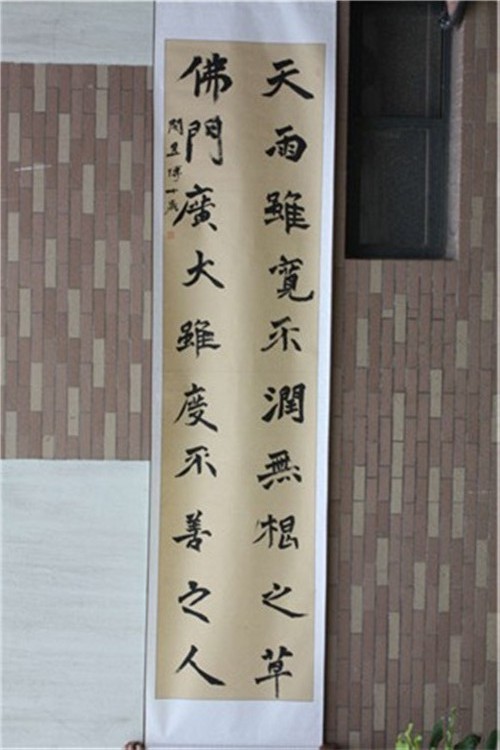 天雨雖寬不潤無根之草
佛門廣大雖度不善之人